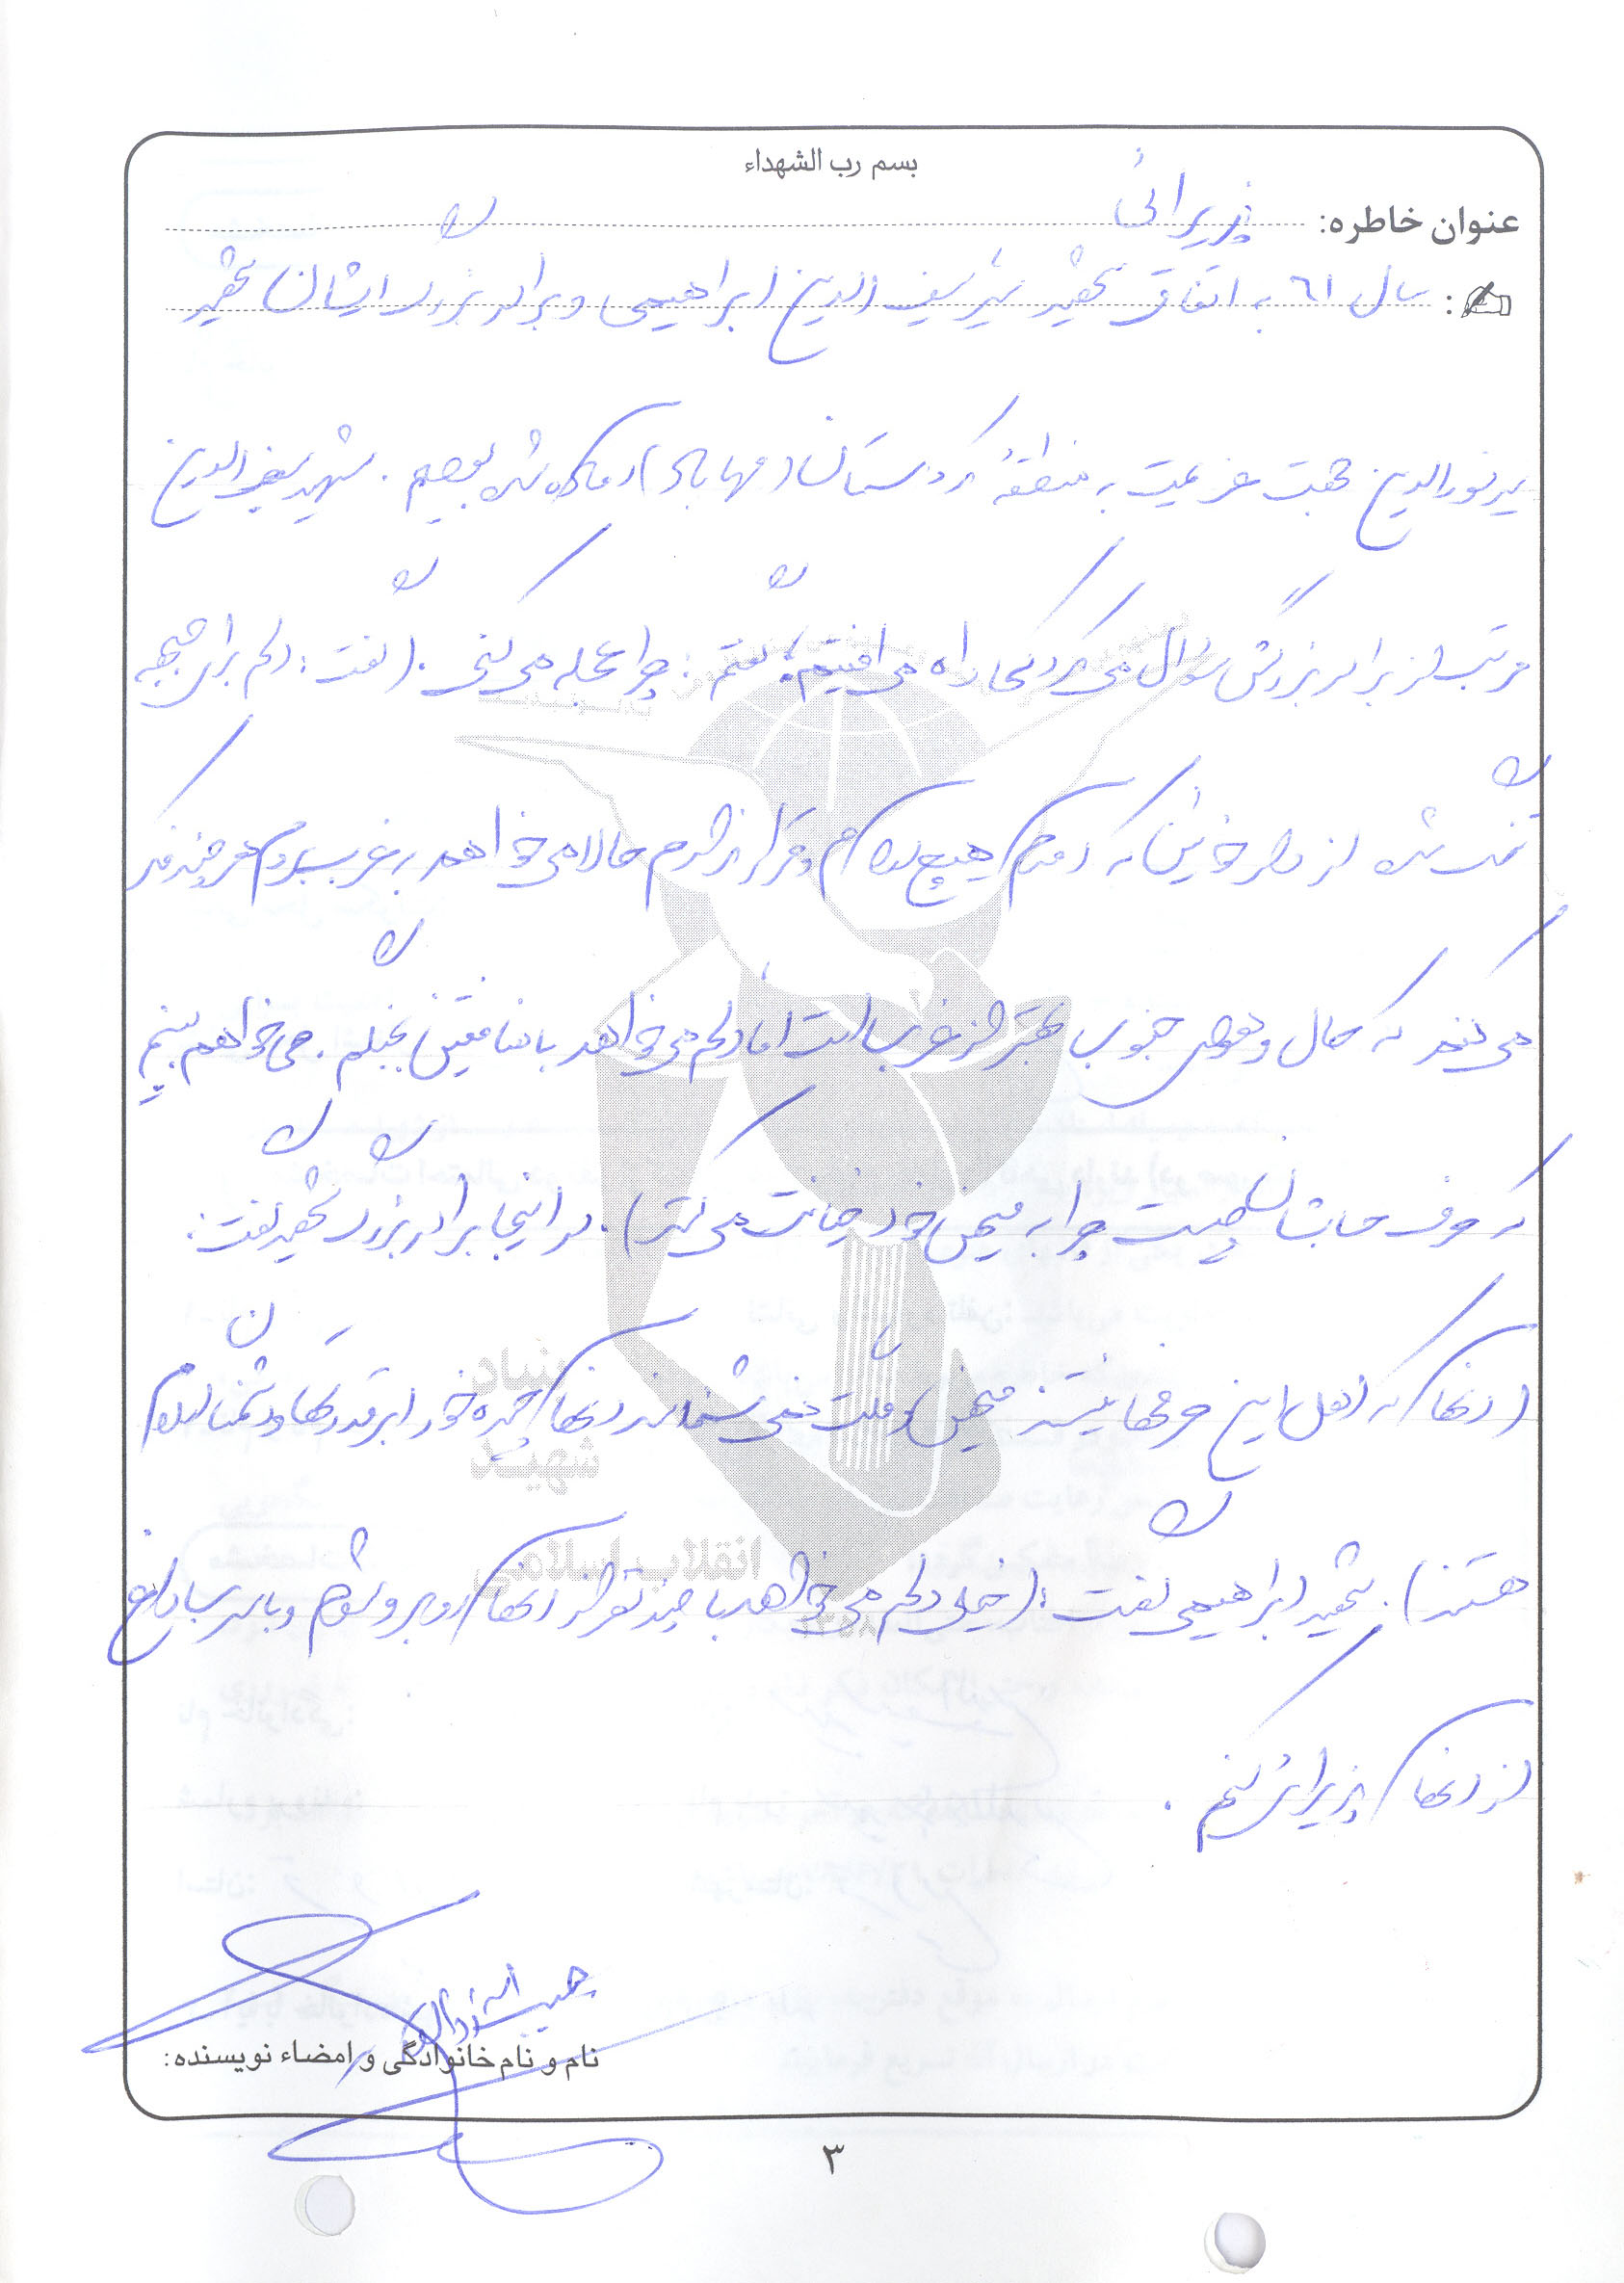 بسم رب الشهداء
عنوان خاطره: پذیرائی
سال ٦١ به اتفاق شهید سیدسیف الدین ابراهیمی و برادر بزرگ ایشان شهید
سید نورالدین جهت عزیمت به منطقهٔ کردستان (مهاباد) آماده شده بودیم. شهید سیف الدین
مرتب از برادر بزرگش سؤال می کرد کی راه می افتیم؟ گفتم: چرا عجله می کنی. (گفت: دلم برای جبهه
تنگ شده از وقتی که آمدم هیچ آرام و قرار ندارم حالا می خواهد به غرب بروم هر چند فکر
می کنم که حال و هوای جنوب بهتر از غرب است اما دلم می خواهد با منافقین بجنگم. می خواهم ببینم
که حرف حسابشان چیست چرا به میهن خود خیانت می کنند). در اینجا برادر بزرگ شهید گفت:
(آنها که اهل این حرفها نیستند میهن و ملت نمی شناسند آنها جیره خور ابرقدرتها و دشمنان اسلام
هستند). شهید ابراهیمی گفت: (خیلی دلم می خواهد با چند نفر از آنها روبرو شوم و با سرب داغ
از آنها پذیرائی کنم.
نام و نام خانوادگی و امضاء نویسنده:
٣